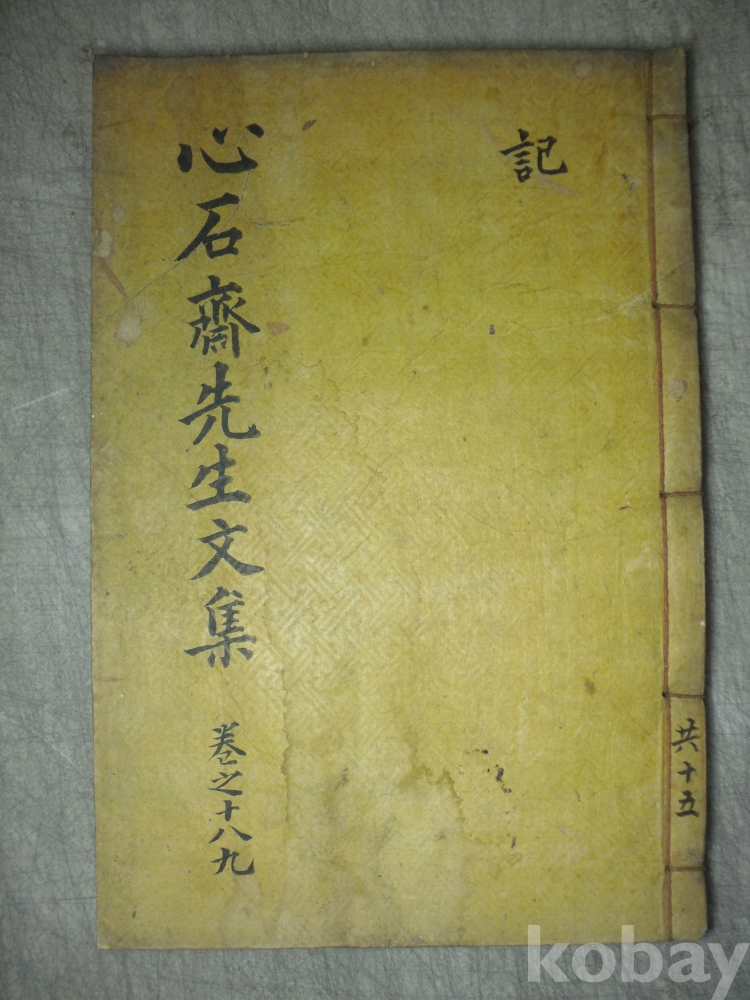 記
心石齋先生文集
卷之十八九
共十五
kobay